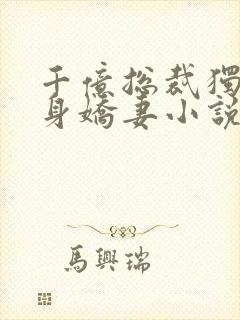 千億總裁獨
身嬌妻小說
馬興瑞